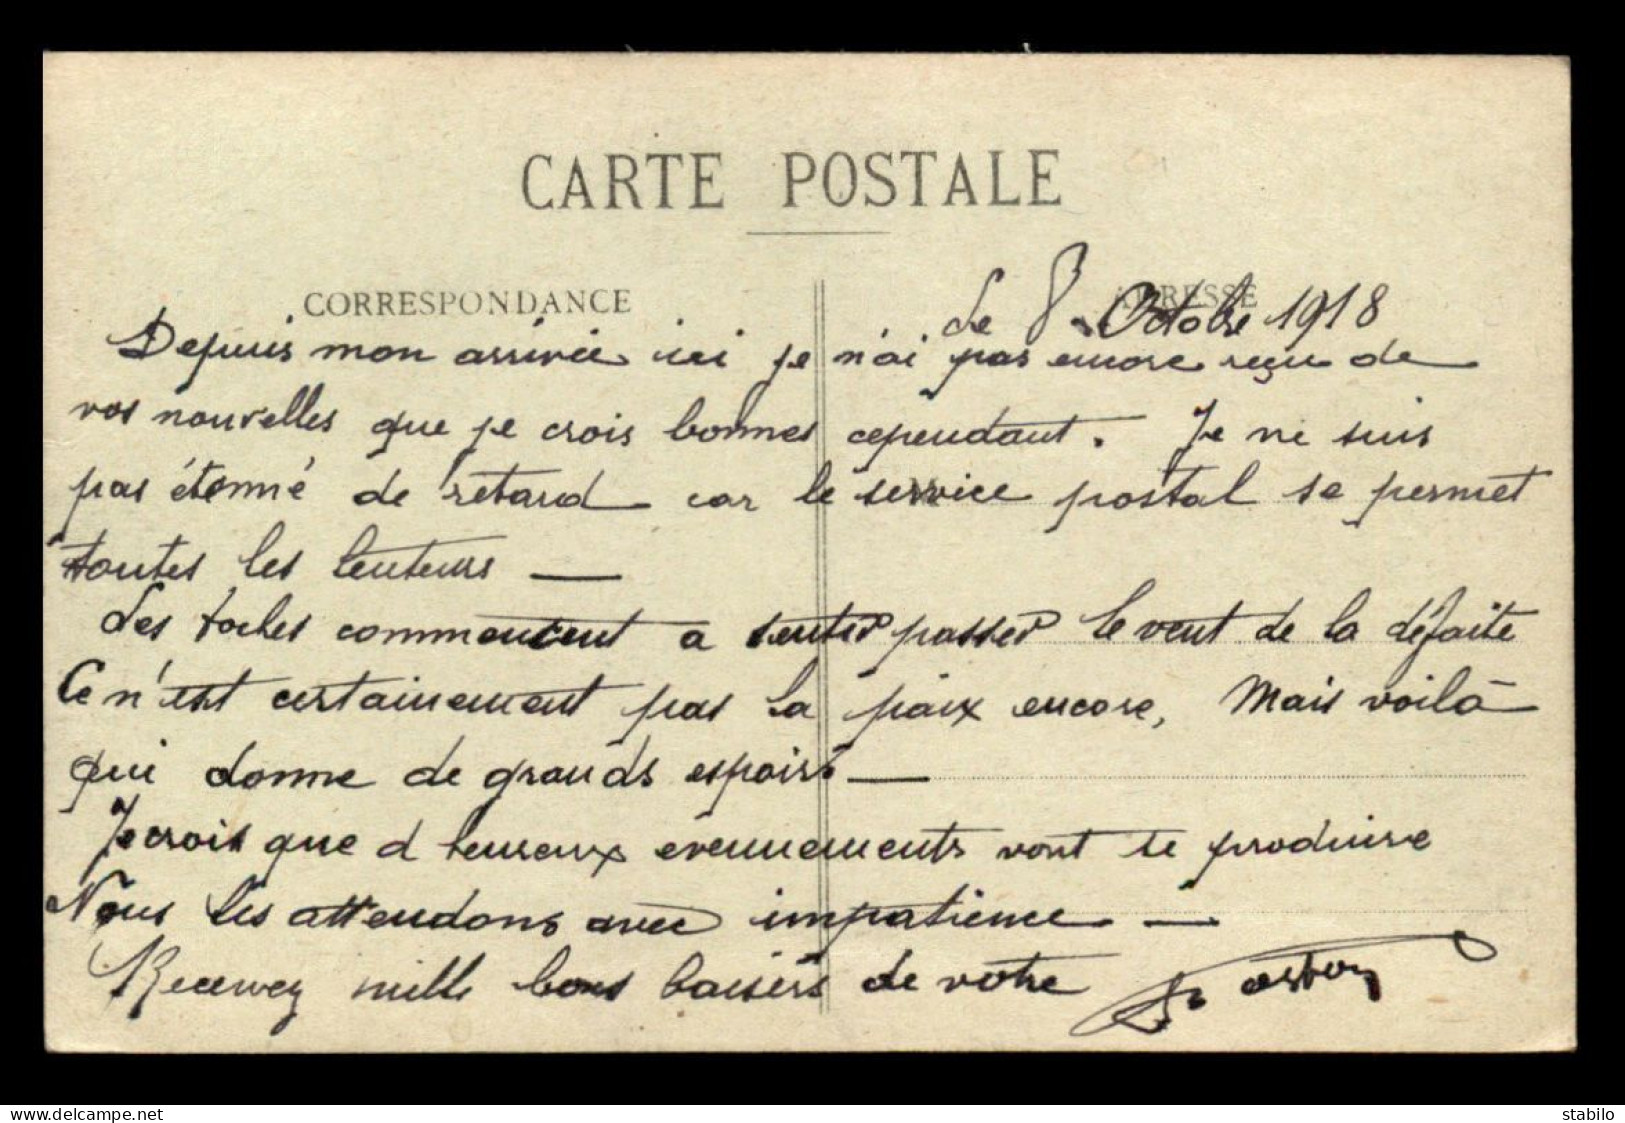 CARTE POSTALE
CORRESPONDANCE
ADRESSE
Le 8 Octobre 1918
Depuis mon arrivée ici je n'ai pas encore reçu de
vos nouvelles que je crois bonnes cependant. Je ne suis
pas étonné de retard car le service postal se permet
toutes les lenteurs —
Les boches commencent a sentir passer le vent de la défaite
Ce n'est certainement pas la paix encore, Mais voilà
qui donne de grands espoirs —
Je crois que d heureux evennements vont se produire
Nous les attendons avec impatience —
Recevez mille bons baisers de votre
delcampe.net
stabilo